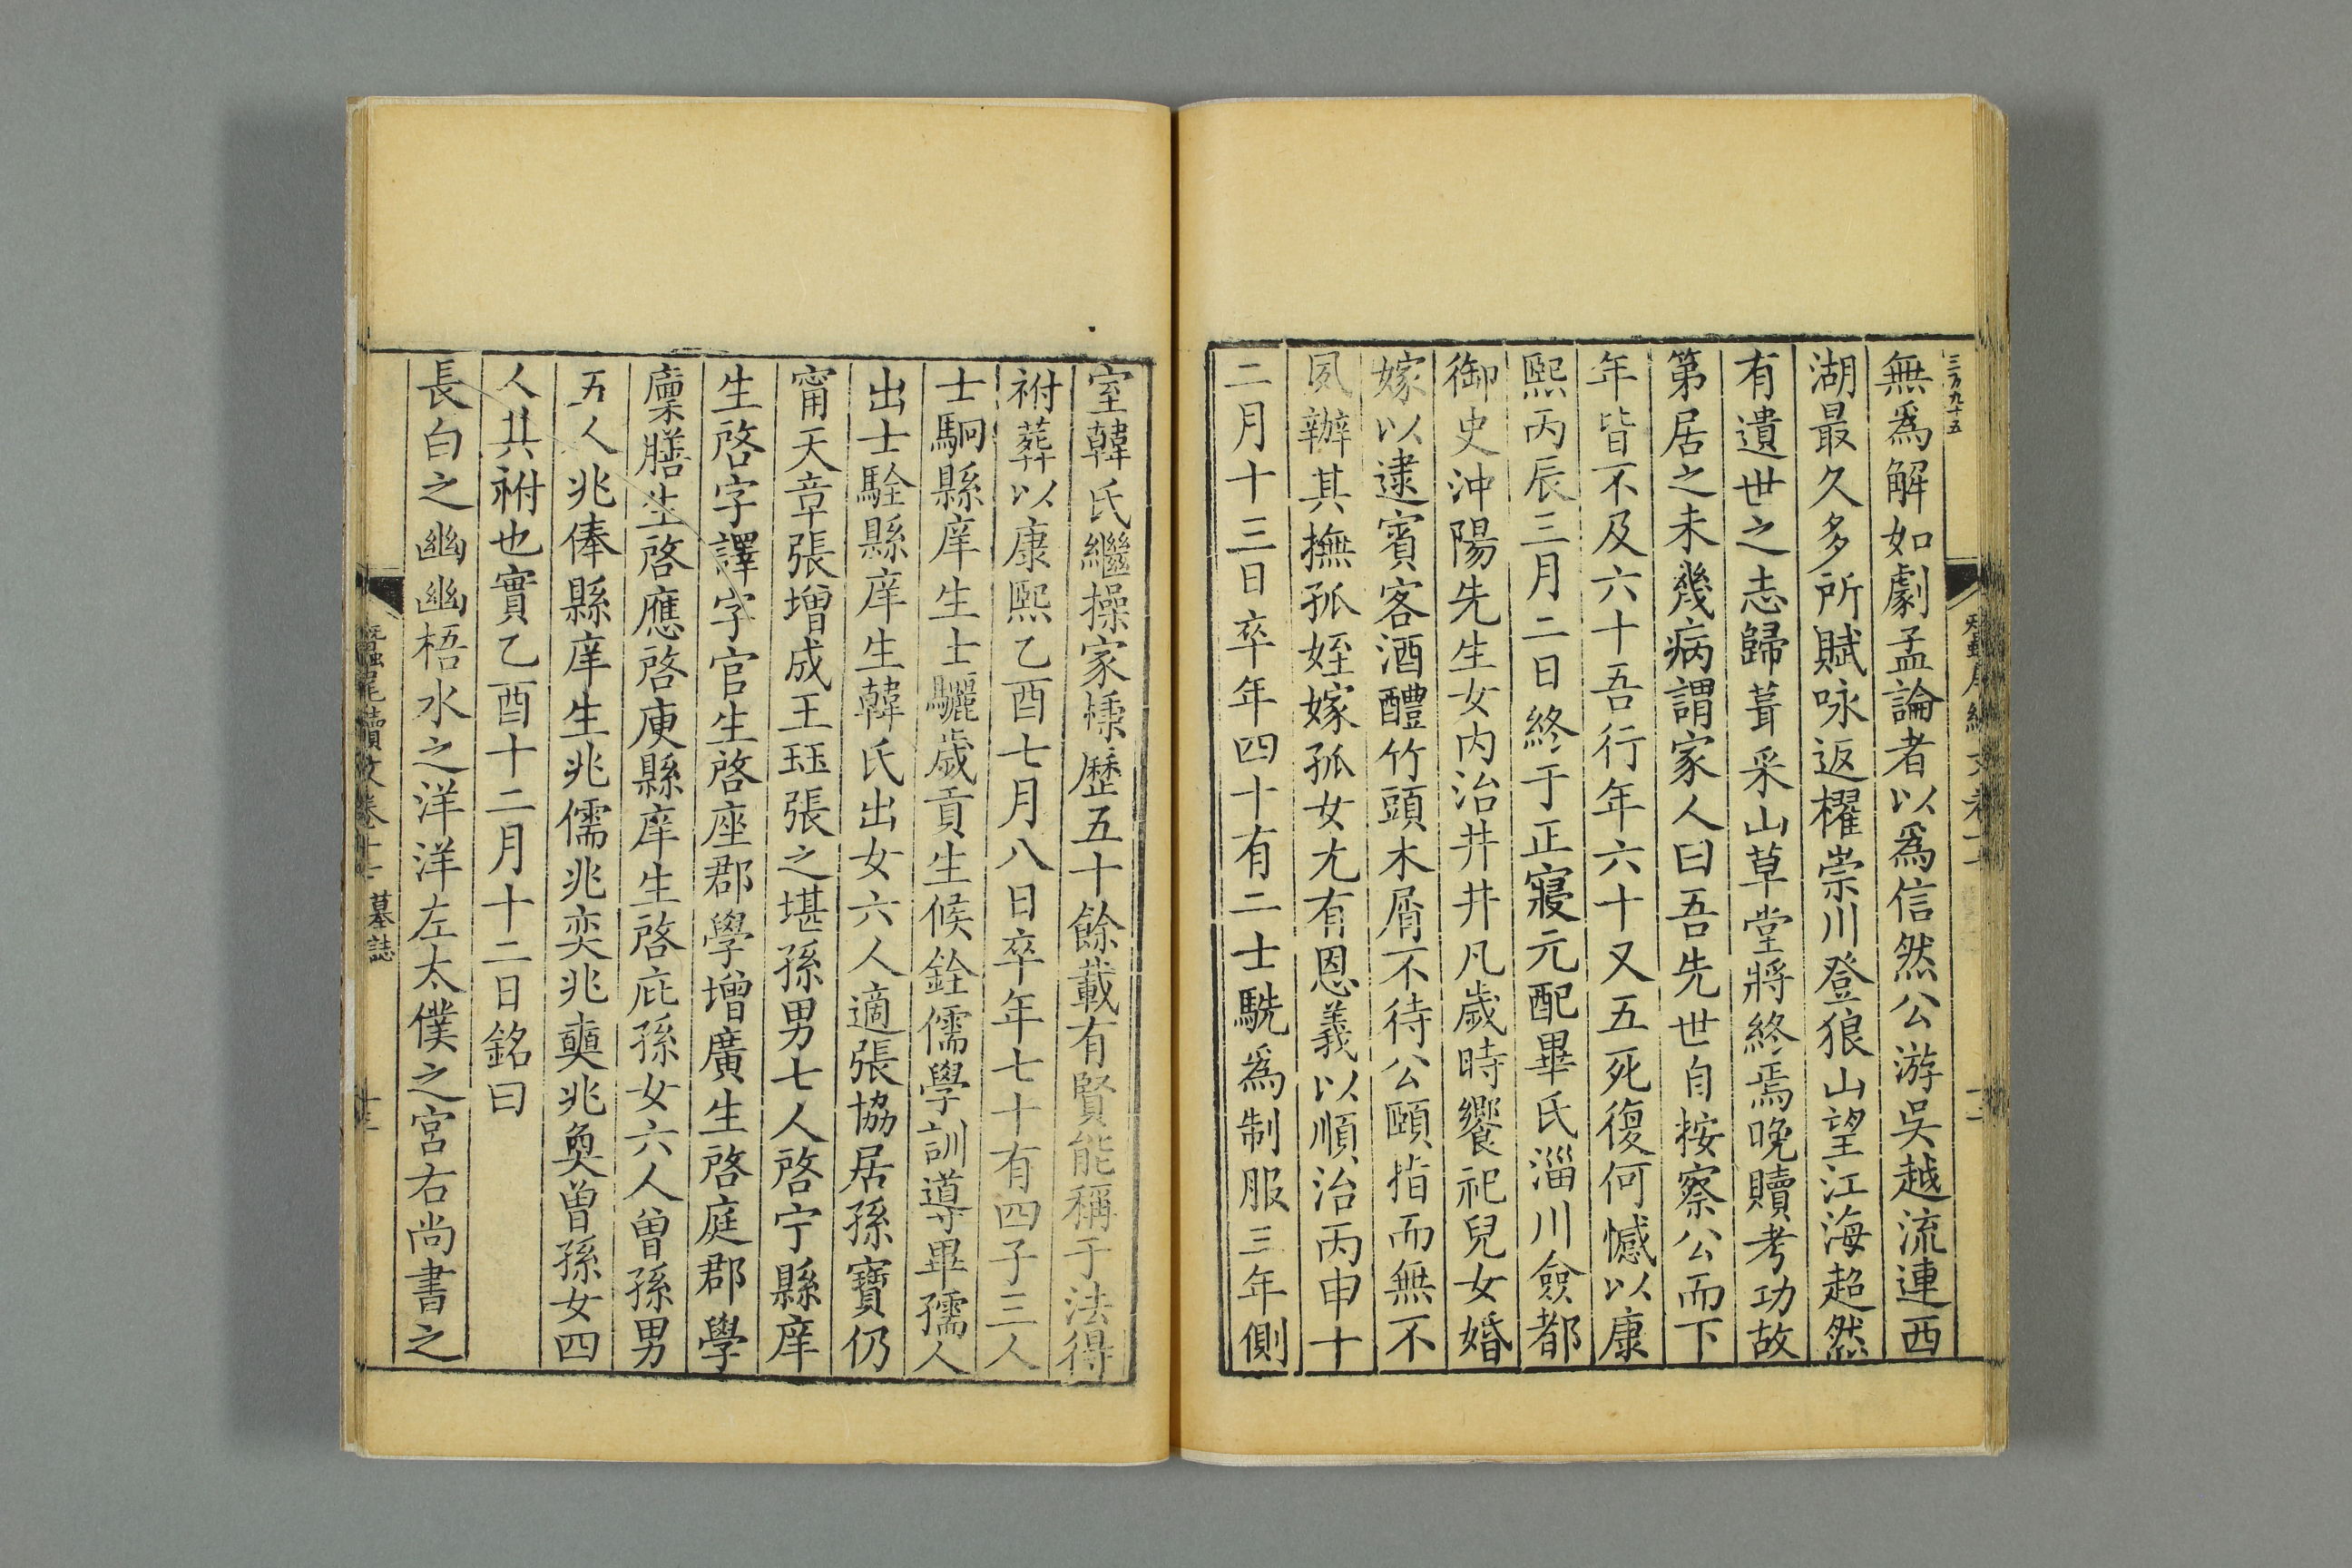 三万九十五
無爲解如劇孟論者以爲信然公游吳越流連西
湖最久多所賦咏返櫂崇川登狼山望江海超然
有遺世之志歸葺采山草堂將終焉晚贖考功故
第居之未幾病謂家人曰吾先世自按察公而下
年皆不及六十吾行年六十又五死復何憾以康
熙丙辰三月二日終于正寢元配畢氏淄川僉都
御史沖陽先生女内治井井凡歲時饗祀兒女婚
嫁以逮賓客酒醴竹頭木屑不待公頤指而無不
夙辦其撫孤姪嫁孤女尤有恩義以順治丙申十
二月十三日卒年四十有二士駪爲制服三年側
室韓氏繼操家棅歷五十餘載有賢能稱于法得
祔葬以康熙乙酉七月八日卒年七十有四子三人
士駉縣庠生士驪歲貢生候銓儒學訓導畢孺人
出士駩縣庠生韓氏出女六人適張協居孫寶仍
甯天章張增成王珏張之堪孫男七人啓宁縣庠
生啓字譯字官生啓座郡學增廣生啓庭郡學
廩膳生啓應啓庾縣庠生啓庇孫女六人曾孫男
五人兆俸縣庠生兆儒兆奕兆奭兆奐曾孫女四
人其祔也實乙酉十二月十二日銘曰
長白之幽幽梧水之洋洋左太僕之宮右尚書之
蠶尾續文卷十七 墓誌 十三